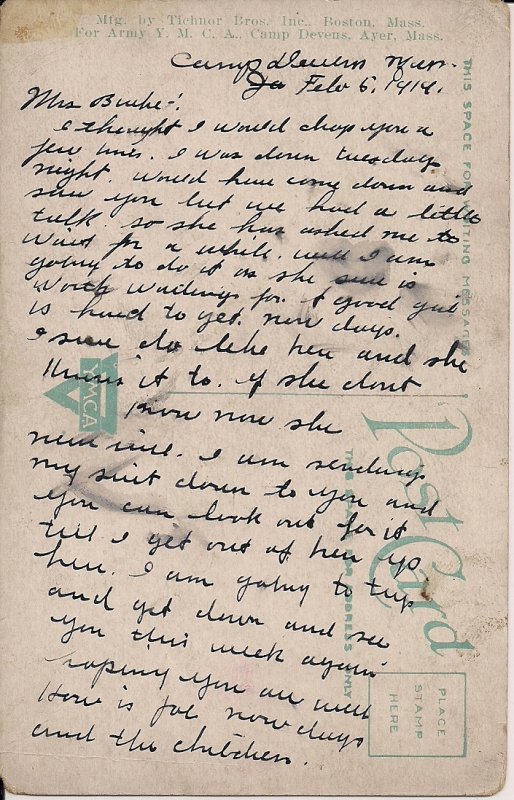 Mfg. by Tichnor Bros. Inc., Boston, Mass.
For Army Y. M. C. A., Camp Devens, Ayer, Mass.
Camp devens Mass.
Feb 5, 1919.
Mrs Burke:
I thought I would drop you a
few lines. I was down tuesday
night. would have come down and
saw you but we had a little
talk. so she has asked me to
wait for a while. well I am
going to do it as she sure is
worth waitings for. A good girl
is hard to get. now days.
I sure do like her and she
knows it to. if she dont
know now she
never will. I am sending
my suit down to you and
you can look out for it
till I get out of here up
here. I am going to try
and get down and see
you this week again
hoping you are well
How is Joe now days
and the children.
THIS SPACE FOR WRITING MESSAGES
YMCA
Post Card
THIS SPACE FOR ADDRESS ONLY
PLACE
STAMP
HERE